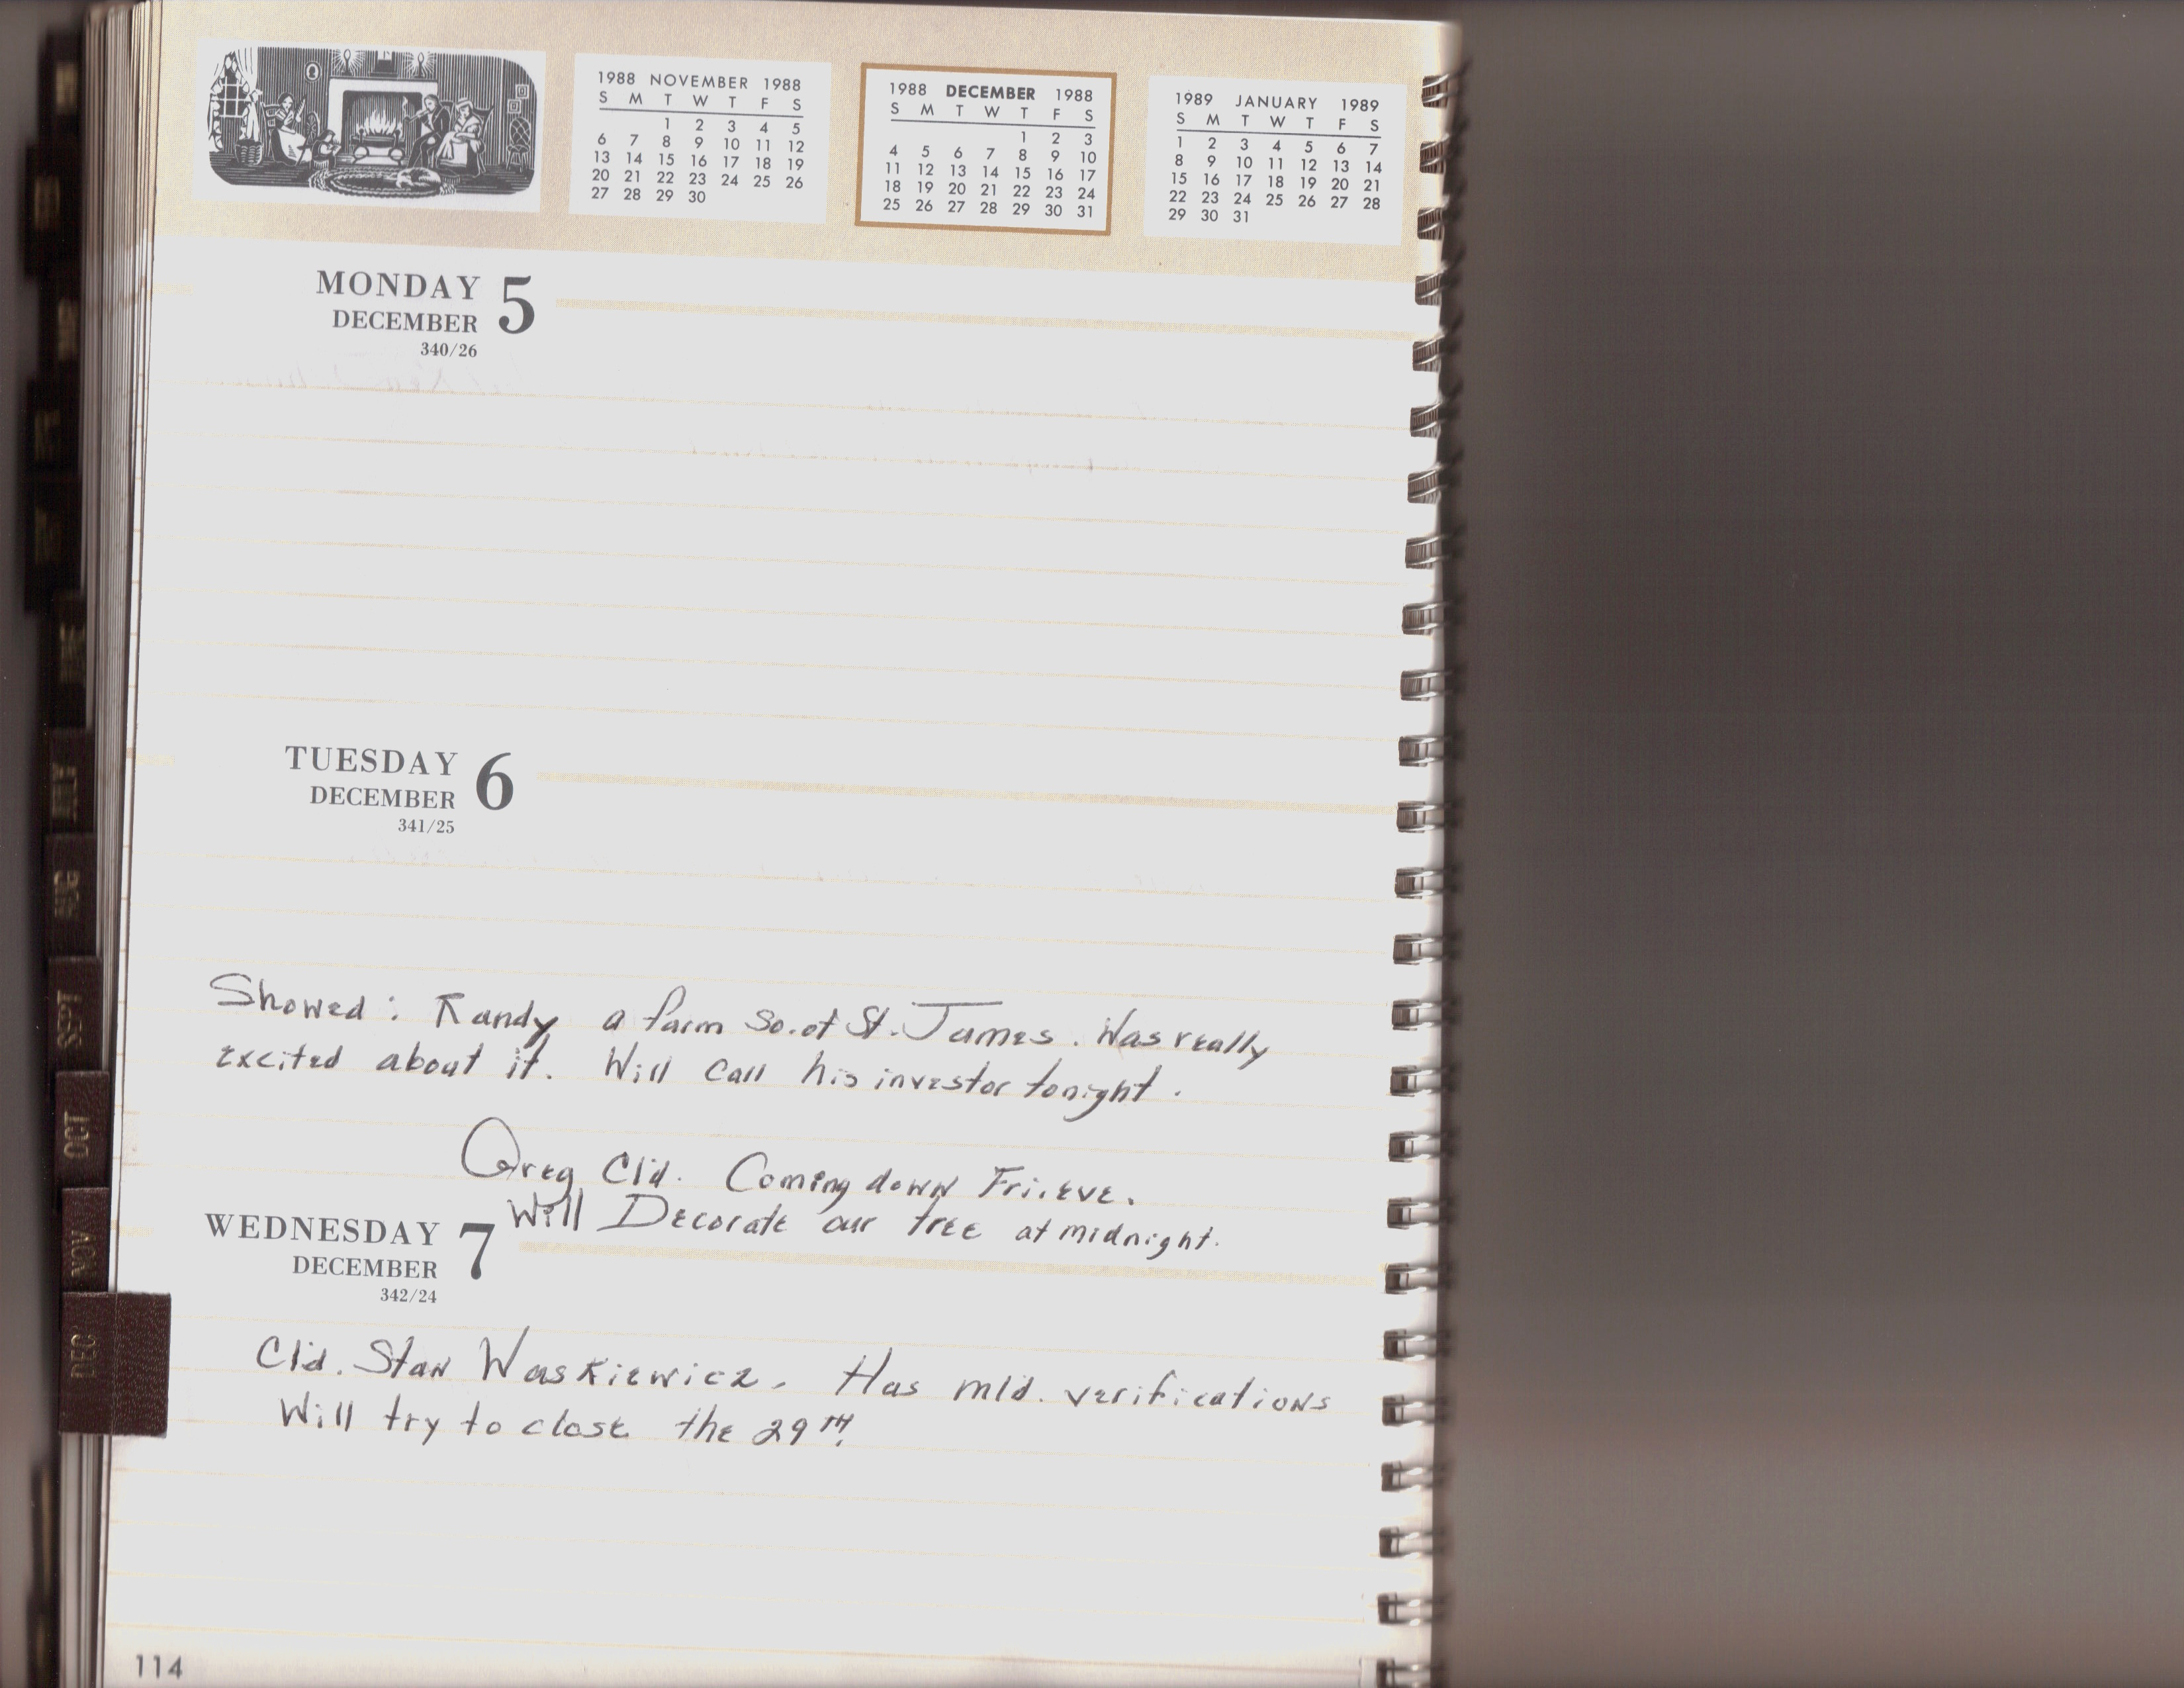 1988 NOVEMBER 1988
S M T W T F S
1 2 3 4 5
6 7 8 9 10 11 12
13 14 15 16 17 18 19
20 21 22 23 24 25 26
27 28 29 30
1988 DECEMBER 1988
S M T W T F S
1 2 3
4 5 6 7 8 9 10
11 12 13 14 15 16 17
18 19 20 21 22 23 24
25 26 27 28 29 30 31
1989 JANUARY 1989
S M T W T F S
1 2 3 4 5 6 7
8 9 10 11 12 13 14
15 16 17 18 19 20 21
22 23 24 25 26 27 28
29 30 31
MONDAY 5
DECEMBER
340/26
TUESDAY 6
DECEMBER
341/25
Showed: Randy a farm So. of St. James. Was really
excited about it. Will call his investor tonight.
Greg Cld. Coming down Fri. eve.
Will Decorate our tree at midnight.
WEDNESDAY 7
DECEMBER
342/24
Cld. Stan Waskiewicz. Has mld. verifications
Will try to close the 29TH.
JULY
AUG
SEPT
OCT
NOV
DEC
114